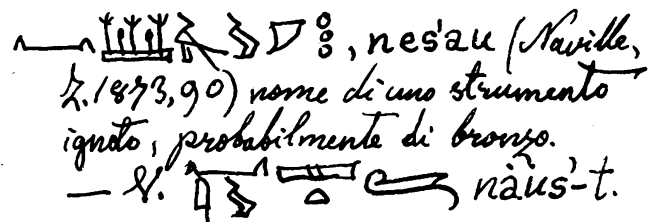 , nes'au (Naville,
Z. 1873, 90) nome di uno strumento
ignoto, probabilmente di bronzo.
— V. nàus'-t.